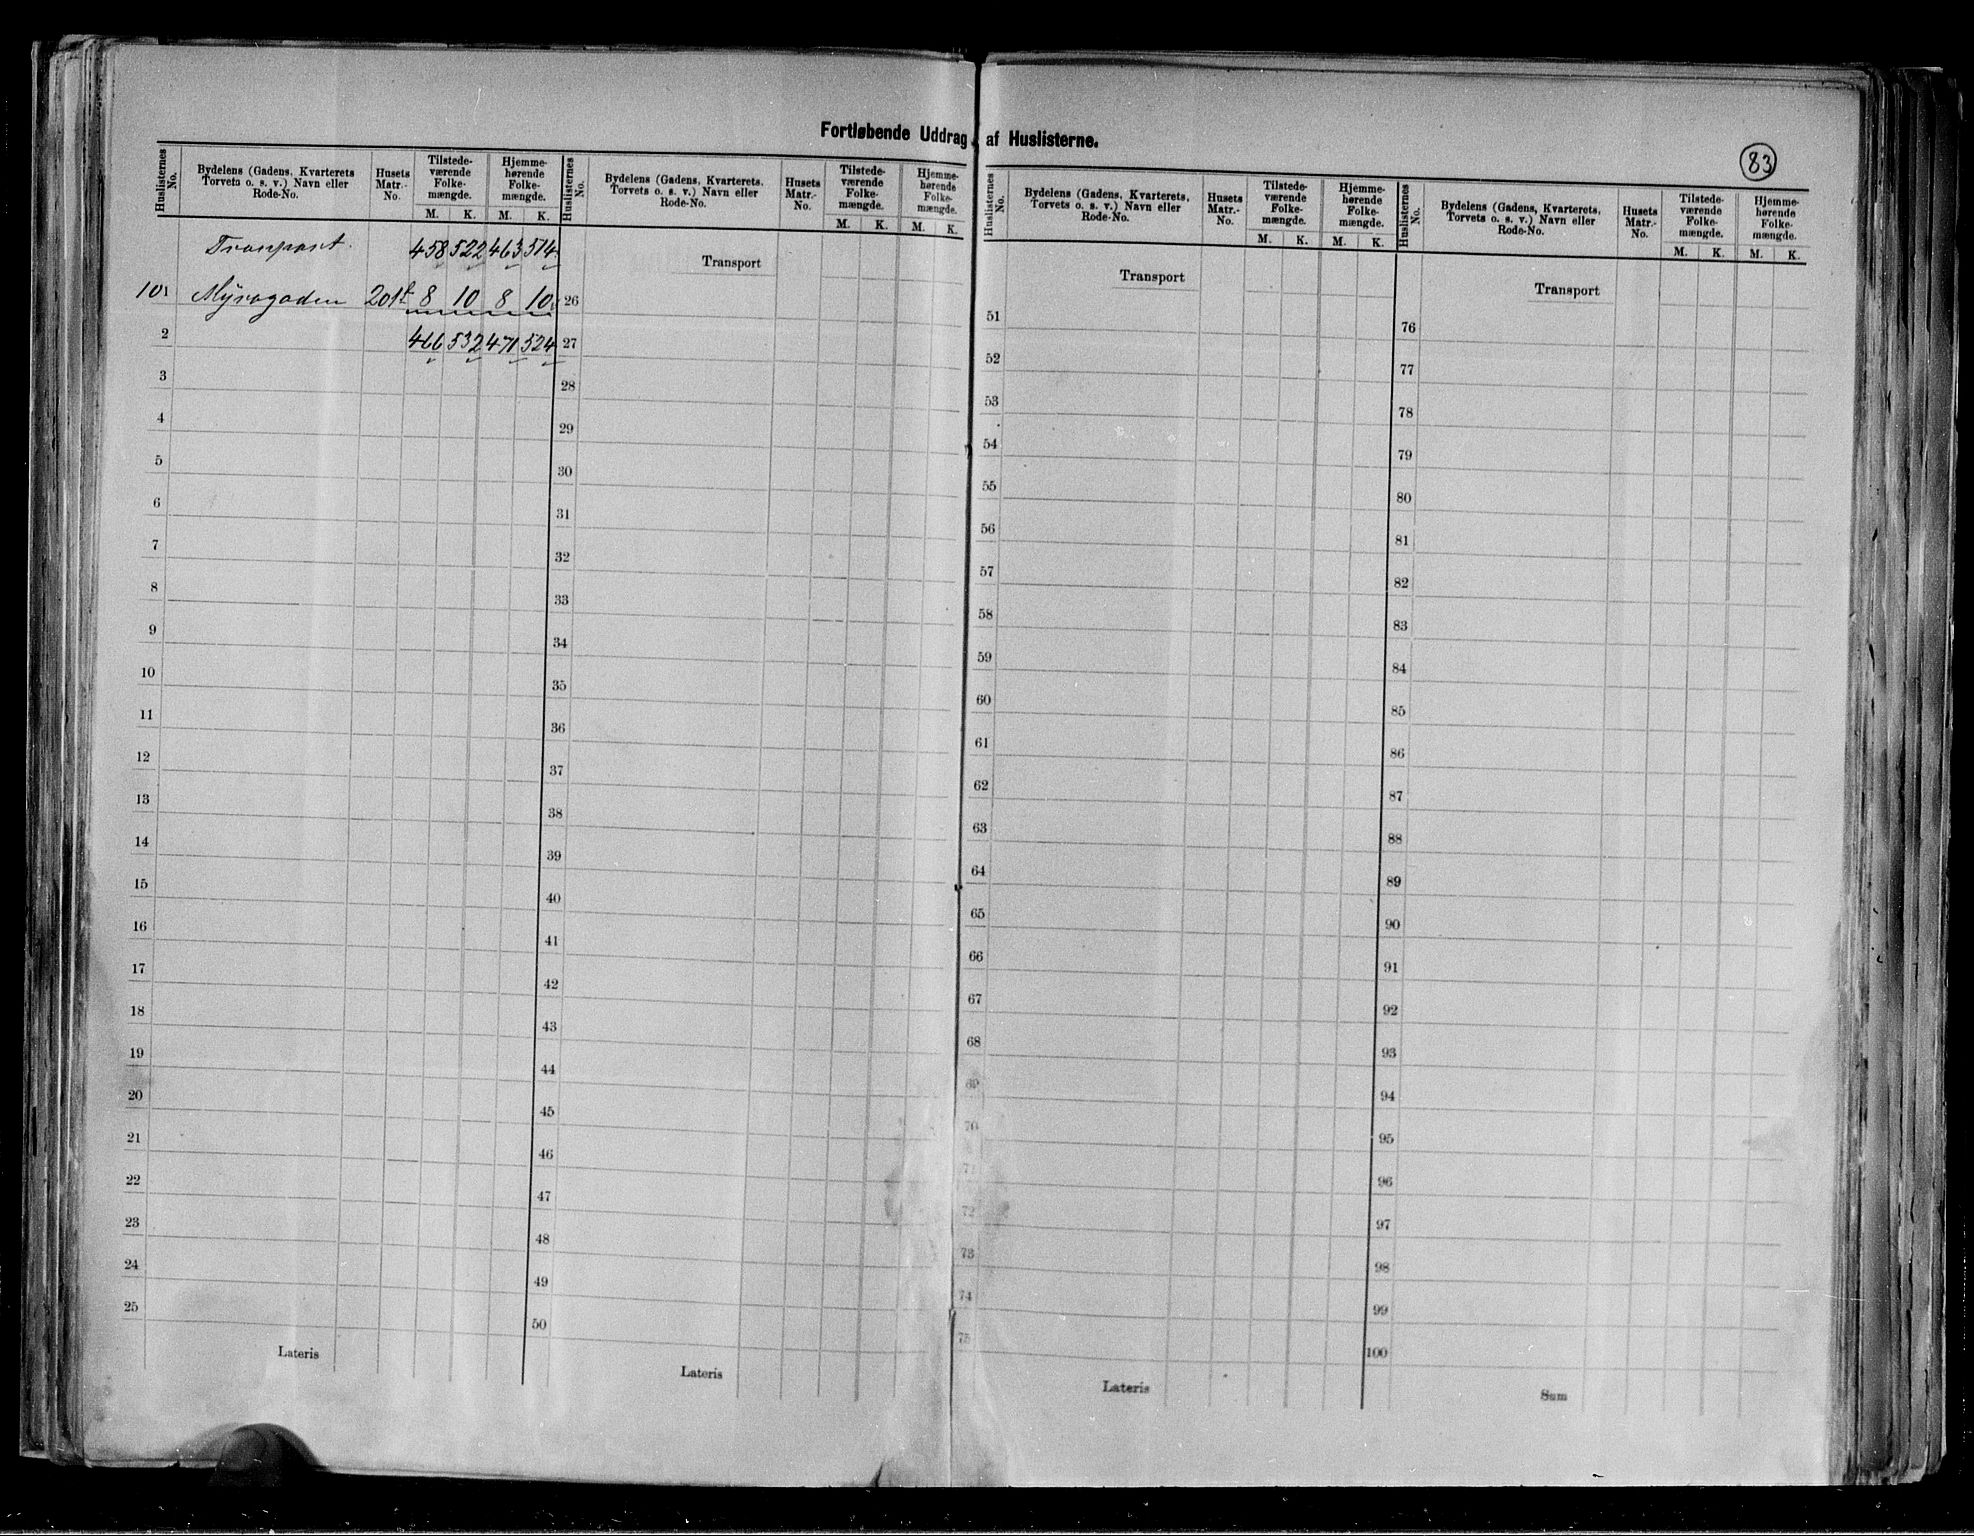 Fortløbende Uddrag af Huslisterne.
83
Huslisternes No.
Bydelens (Gadens, Kvarterets Torvets o. s. v.) Navn eller Rode-No.
Husets Matr.-No.
Tilstede-værende Folke-mængde.
Hjemme-hørende Folke-mængde.
M. K. M. K.
Transport. 458 522 463 514
101 Myragaden 8 10 8 10
2 466 532 471 524
3
4
5
6
7
8
9
10
11
12
13
14
15
16
17
18
19
20
21
22
23
24
25
Lateris
Huslisternes No.
Bydelens (Gadens, Kvarterets, Torvets o. s. v.) Navn eller Rode-No.
Husets Matr.-No.
Tilstede-værende Folke-mængde.
Hjemme-hørende Folke-mængde.
M. K. M. K.
Transport
26
27
28
29
30
31
32
33
34
35
36
37
38
39
40
41
42
43
44
45
46
47
48
49
50
Lateris
Huslisternes No.
Bydelens (Gadens, Kvarterets, Torvets o. s. v.) Navn eller Rode-No.
Husets Matr.-No.
Tilstede-værende Folke-mængde.
Hjemme-hørende Folke-mængde.
M. K. M. K.
Transport
51
52
53
54
55
56
57
58
59
60
61
62
63
64
65
66
67
68
69
70
71
72
73
74
75
Lateris
Huslisternes No.
Bydelens (Gadens, Kvarterets, Torvets o. s. v.) Navn eller Rode-No.
Husets Matr.-No.
Tilstede-værende Folke-mængde.
Hjemme-hørende Folke-mængde.
M. K. M. K.
Transport
76
77
78
79
80
81
82
83
84
85
86
87
88
89
90
91
92
93
94
95
96
97
98
99
100
Sum